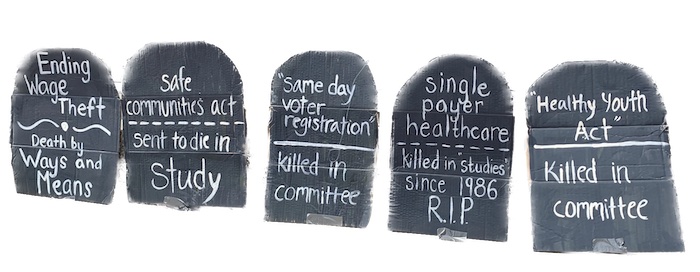 Ending
Wage
Theft
Death by
Ways and
Means
Safe
communities act
sent to die in
Study
"Same day
voter
registration"
killed in
committee
single
payer
healthcare
killed in studies
since 1986
R.I.P
"Healthy Youth
Act"
Killed in
committee